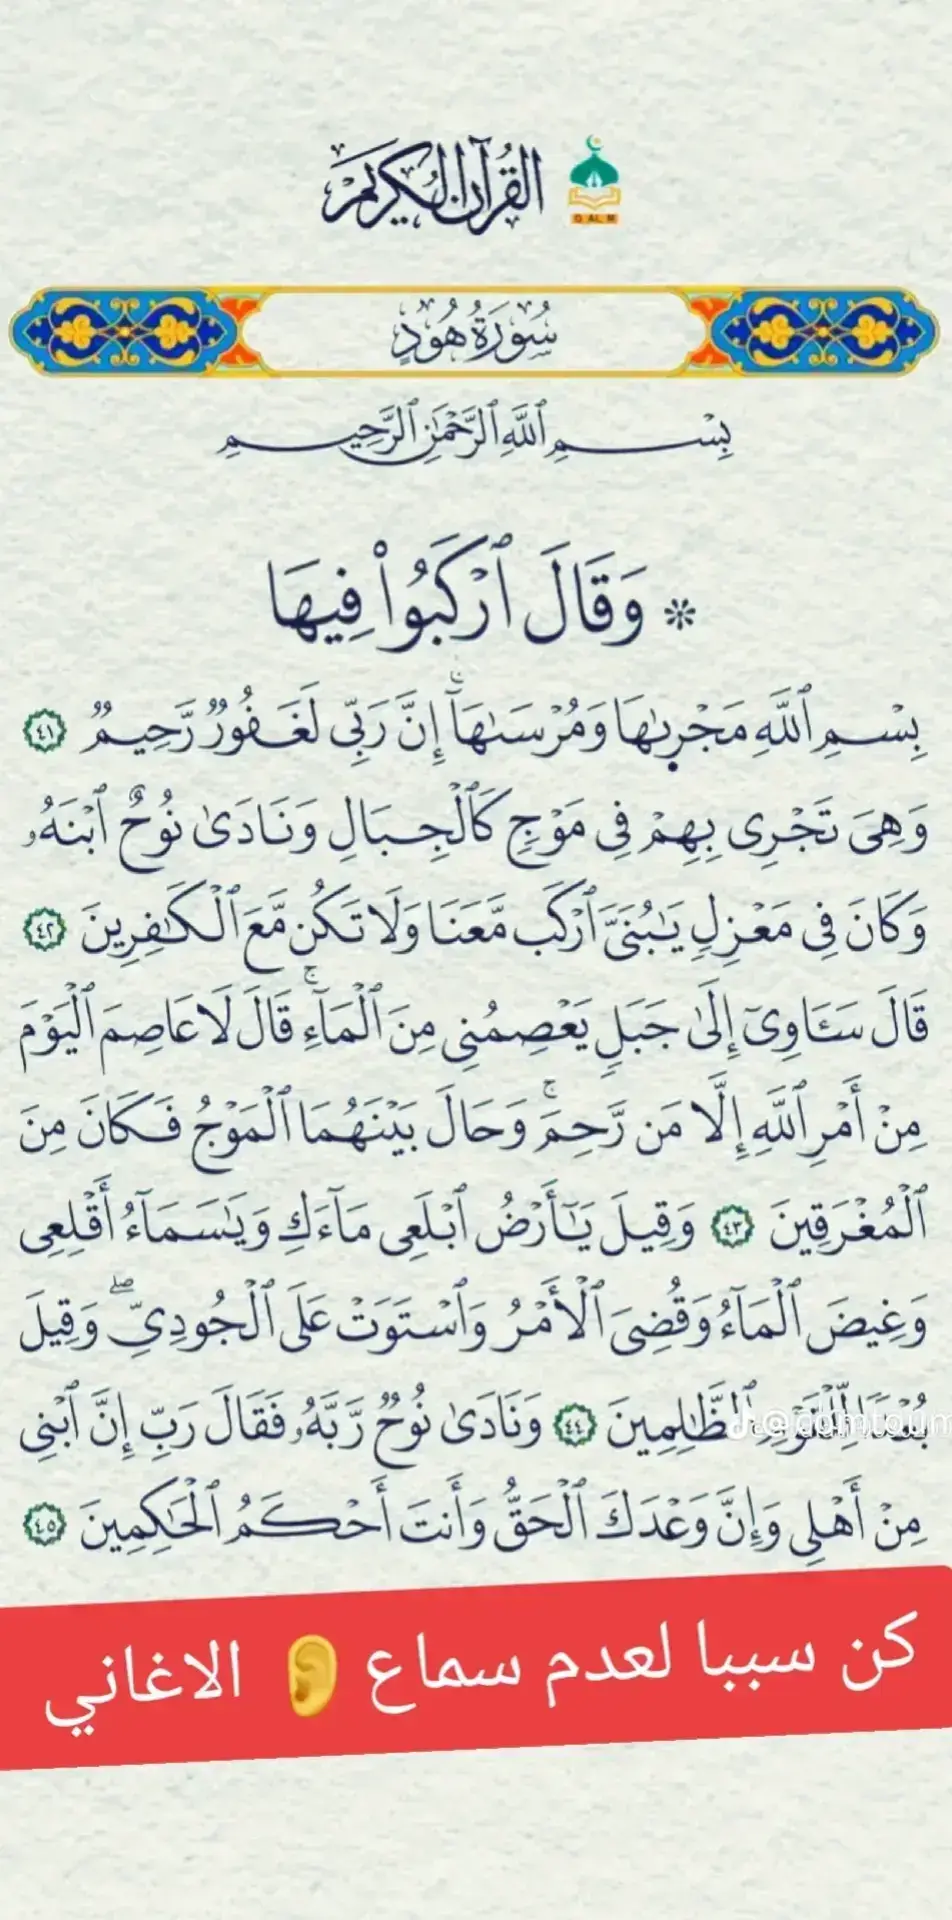 القرآن الكريم
Q AL M
سُورَةُ هُودٍ
بِسْمِ ٱللَّهِ ٱلرَّحْمَٰنِ ٱلرَّحِيمِ
* وَقَالَ ٱرْكَبُوا۟ فِيهَا
بِسْمِ ٱللَّهِ مَجْر۪ىٰهَا وَمُرْسَىٰهَآ ۚ إِنَّ رَبِّى لَغَفُورٌ رَّحِيمٌ ٤١
وَهِىَ تَجْرِى بِهِمْ فِى مَوْجٍ كَٱلْجِبَالِ وَنَادَىٰ نُوحٌ ٱبْنَهُۥ
وَكَانَ فِى مَعْزِلٍ يَٰبُنَىَّ ٱرْكَب مَّعَنَا وَلَا تَكُن مَّعَ ٱلْكَٰفِرِينَ ٤٢
قَالَ سَـَٔاوِىٓ إِلَىٰ جَبَلٍ يَعْصِمُنِى مِنَ ٱلْمَآءِ ۚ قَالَ لَا عَاصِمَ ٱلْيَوْمَ
مِنْ أَمْرِ ٱللَّهِ إِلَّا مَن رَّحِمَ ۚ وَحَالَ بَيْنَهُمَا ٱلْمَوْجُ فَكَانَ مِنَ
ٱلْمُغْرَقِينَ ٤٣ وَقِيلَ يَٰٓأَرْضُ ٱبْلَعِى مَآءَكِ وَيَٰسَمَآءُ أَقْلِعِى
وَغِيضَ ٱلْمَآءُ وَقُضِىَ ٱلْأَمْرُ وَٱسْتَوَتْ عَلَى ٱلْجُودِىِّ ۖ وَقِيلَ
بُعْدًا لِّلْقَوْمِ ٱلظَّٰلِمِينَ ٤٤ وَنَادَىٰ نُوحٌ رَّبَّهُۥ فَقَالَ رَبِّ إِنَّ ٱبْنِى
مِنْ أَهْلِى وَإِنَّ وَعْدَكَ ٱلْحَقُّ وَأَنتَ أَحْكَمُ ٱلْحَٰكِمِينَ ٤٥
كن سببا لعدم سماع 👂 الاغاني